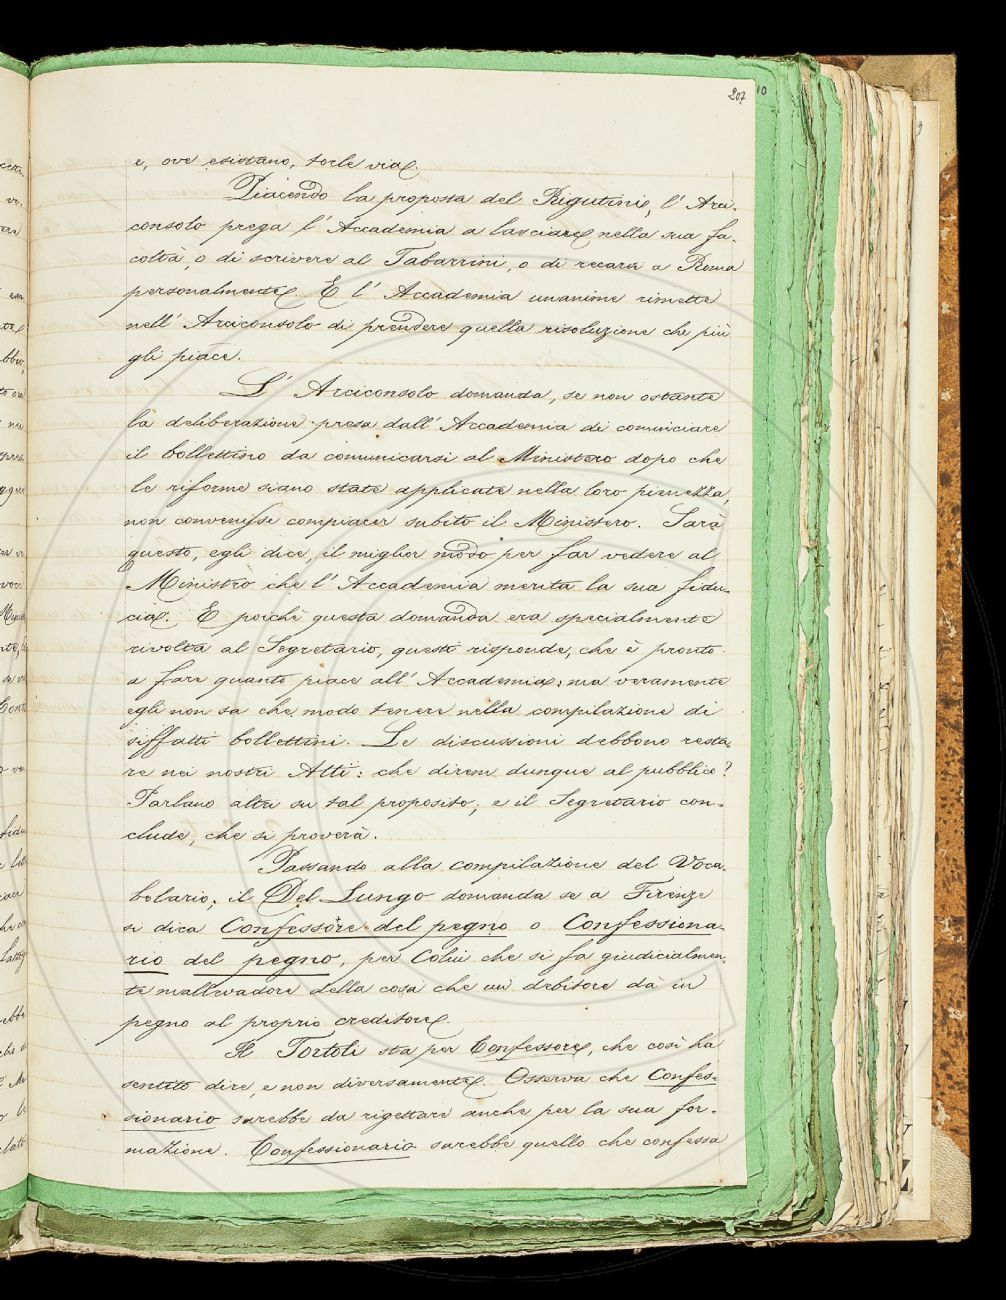 207 10
e, ove esistano, torle via.
Piacendo la proposta del Rigutini, l' Arci-
consolo prega l' Accademia a lasciare nella sua fa-
coltà, o di scrivere al Tabarrini, o di recarsi a Roma
personalmente. E l' Accademia unanime rimette
nell' Arciconsolo di prendere quella risoluzione che più
gli piace.
L' Arciconsolo domanda, se non ostante
la deliberazione presa dall' Accademia di cominciare
il bollettino da comunicarsi al Ministero dopo che
le riforme siano state applicate nella loro pienezza,
non convenisse compiacer subito il Ministero. Sarà
questo, egli dice, il miglior modo per far vedere al
Ministro che l' Accademia merita la sua fidu-
cia. E poichè questa domanda era specialmente
rivolta al Segretario, questo risponde, che è pronto
a fare quanto piace all' Accademia; ma veramente
egli non sa che modo tenere nella compilazione di
siffatti bollettini. Le discussioni debbono resta-
re nei nostri Atti: che direm dunque al pubblico?
Parlano altri su tal proposito; e il Segretario con-
clude, che si proverà.
Passando alla compilazione del Voca-
bolario; il Del Lungo domanda se a Firenze
si dica Confessore del pegno o Confessiona-
rio del pegno, per Colui che si fa giudicialmen-
te mallevadore della cosa che un debitore dà in
pegno al proprio creditore.
Il Tortoli sta per Confessore, che così ha
sentito dire, e non diversamente. Osserva che Confes-
sionario sarebbe da rigettare anche per la sua for-
mazione. Confessionario sarebbe quello che confessa